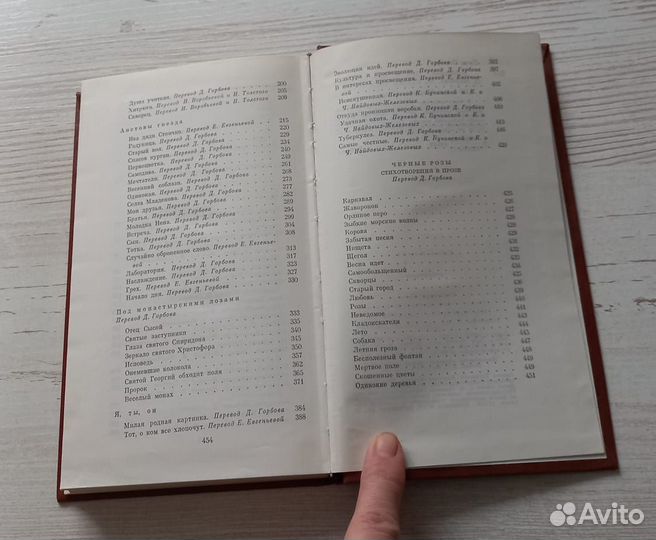 Душа учителя. Перевод Д. Горбова . . . . 200
Хитрец. Перевод И. Воробьевой и Н. Толстого 205
Скворец. Перевод И. Воробьевой и Н. Толстого 209
Аистовы гнезда . . . . 215
Ива дяди Стойчо. Перевод Е. Евгеньевой . . 220
Радушка. Перевод Д. Горбова . . . . 229
Старый вол. Перевод Д. Горбова . . . . 234
Спасов курган. Перевод Д. Горбова . . . . 240
Первоцветка. Перевод Д. Горбова . . . . 249
Самодива. Перевод Д. Горбова . . . . 261
Мечтатели. Перевод Д. Горбова . . . . 268
Весенний соблазн. Перевод Д. Горбова . . . . 273
Одинокая. Перевод Д. Горбова . . . . 277
Села Младенова. Перевод Д. Горбова . . . . 282
Мои друзья. Перевод Д. Горбова . . . . 289
Братья. Перевод Д. Горбова . . . . 294
Молодка Нена. Перевод Д. Горбова . . . . 299
Встреча. Перевод Д. Горбова . . . . 304
Сын. Перевод Д. Горбова . . . . 308
Тотка. Перевод Д. Горбова
Случайно оброненное слово. Перевод Е. Евгенье-
вой . . . . 313
Лаборатория. Перевод Д. Горбова . . . . 317
Наслаждение. Перевод Д. Горбова . . . . 323
Грех. Перевод Е. Евгеньевой . . . . 327
Начало дня. Перевод Д. Горбова . . . . 330
Под монастырскими лозами
Перевод Д. Горбова
Отец Сысой . . . . 333
Святые заступники . . . . 335
Глаза святого Спиридона . . . . 340
Зеркало святого Христофора . . . . 345
Исповедь . . . . 350
Онемевшие колокола . . . . 357
Святой Георгий обходит поля . . . . 362
Пророк . . . . 365
Веселый монах . . . . 371
Я, ты, он
Милая родная картинка. Перевод Д. Горбова 384
Тот, о ком все хлопочут. Перевод Е. Евгеньевой 388
454
Эволюция идей. Перевод Д. Горбова . . . . 392
Культура и просвещение. Перевод Д. Горбова
В интересах просвещения. Перевод Е. Евгенье-
вой
Всемогущая. Перевод К. Бучинской и
Ч. Найдовича-Железовых
Откуда произошли воробьи. Перевод Д. Горбова
Удачная охота. Перевод К. Бучинской и
Ч. Найдовича-Железовых
Туберкулез. Перевод Д. Горбова
Самые честные. Перевод К. Бучинской и
Ч. Найдовича-Железовых . . . . 420
ЧЕРНЫЕ РОЗЫ
СТИХОТВОРЕНИЯ В ПРОЗЕ
Перевод Д. Горбова
Карнавал . . . . 425
Жаворонок
Орлиное перо
Зыбкие морские волны
Корона
Забытая песня
Нищета
Щегол
Весна идет
Самообольщенный
Скворцы
Старый город
Любовь
Розы
Неведомое
Кладоискатели
Лето
Собака
Летняя гроза
Бесполезный фонтан
Мертвое поле
Скошенные цветы . . . . 451
Одинокие деревья
Avito